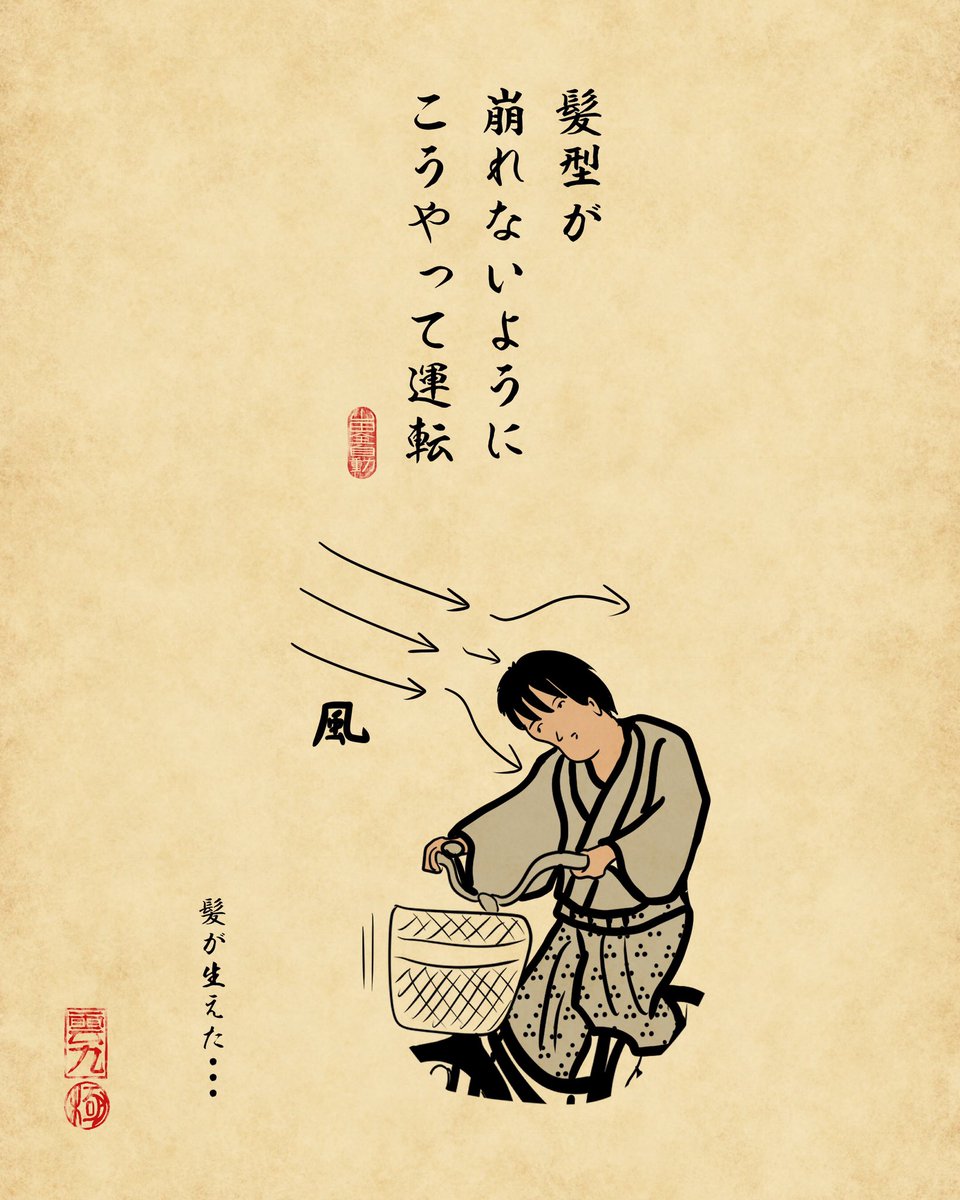 髪型が
崩れないように
こうやって運転
風
髪が生えた・・・